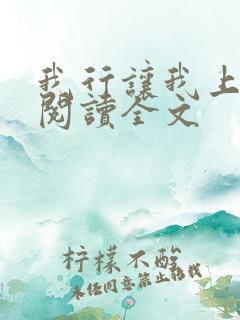 我行讓我上
閱讀全文
柠檬不酸
未经同意禁止搭我